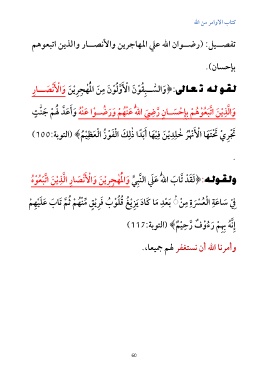 كتاب الأوامر من الله
تفصـــيل: (رضـــوان الله علي المهاجرين والأنصـــار والذين اتبعوهم
بإحسان).
لقوله تعالى:﴿وَالسّٰــبِقُوْنَ الْاَوَّلُوْنَ مِنَ الْمُهٰجِرِيْنَ وَالْاَنْصَــارِ
وَالَّذِيْنَ اتَّبَعُوْهُمْ بِاِحْسَــانٍ رَّضِيَ اللهُ عَنْهُمْ وَرَضُــوْا عَنْهُ وَاَعَدَّ لَهُمْ جَنّٰتٍ
تَجْرِيْ تَحْتَهَا الْاَنْهٰرُ خٰلِدِيْنَ فِيْهَآ اَبَدًا ذٰلِكَ الْفَوْزُ الْعَظِيْمُ﴾ (التوبة:100)
.
ولقوله:﴿لَقَدْ تَّابَ اللهُ عَلَى النَّبِيِّ وَالْمُهٰجِرِيْنَ وَالْاَنْصَارِ الَّذِيْنَ اتَّبَعُوْهُ
فِيْ سَاعَةِ الْعُسْرَةِ مِنْۢ بَعْدِ مَا كَادَ يَزِيْغُ قُلُوْبُ فَرِيْقٍ مِّنْهُمْ ثُمَّ تَابَ عَلَيْهِمْ
اِنَّهٗ بِهِمْ رَءُوْفٌ رَّحِيْمٌ﴾ (التوبة:117)
وأمرنا الله أن نستغفر لهم جميعا،.
60